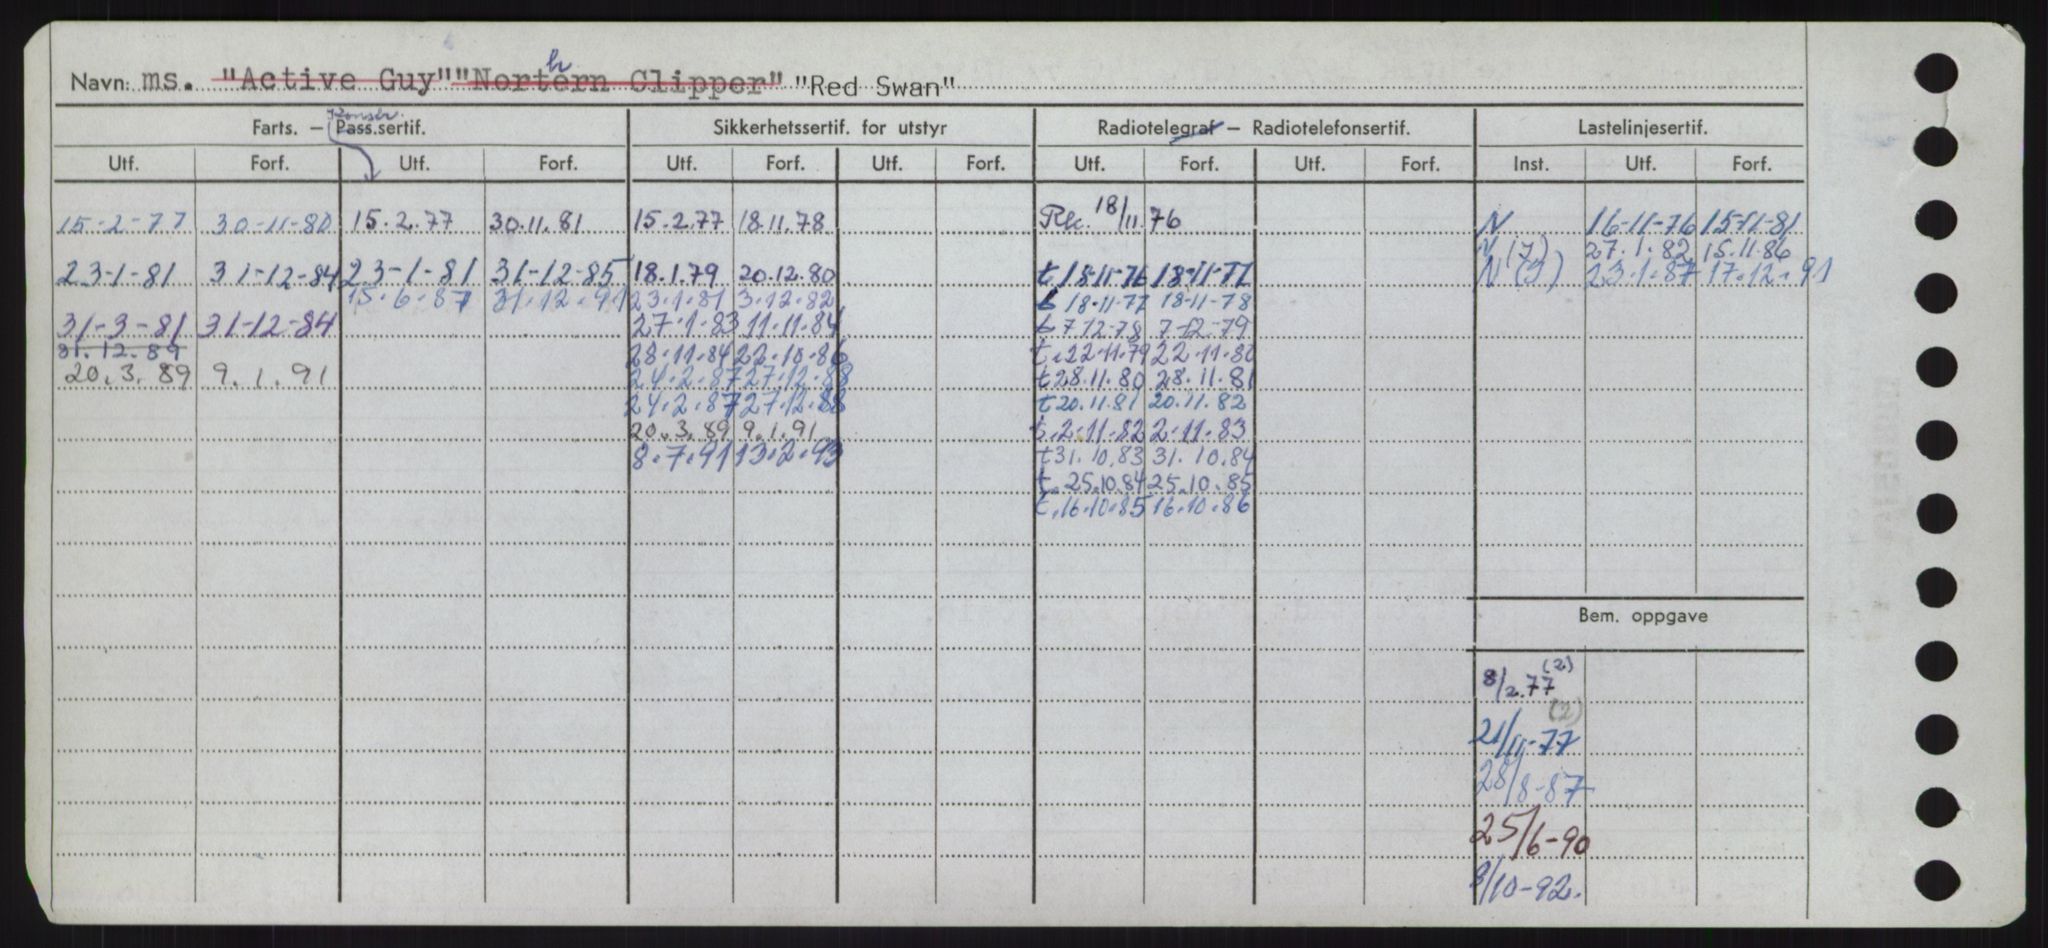 Navn: ms. "Active Guy" "Northern Clipper" "Red Swan"
Farts. — Pass.sertif. Sikkerhetssertif. for utstyr Radiotelegraf — Radiotelefonsertif. Lastelinjesertif.
Utf. Forf. Utf. Forf. Utf. Forf. Utf. Forf. Utf. Forf. Utf. Forf. Inst. Utf. Forf.
15-2-77 30-11-80 15.2.77 30.11.81 15.2.77 18.11.78 Rk. 18/11.76 N 16-11-76 15-11-81
N (7) 27.1.82 15.11.86
23-1-81 31-12-84 23-1-81 31-12-85 18.1.79 20.12.80 t 18-11-76 18-11-77 N (3) 23.1.87 17.12.91
15.6.87 31.12.91 23.1.81 3.12.82 t 18-11-77 18-11-78
31-3-81 31-12-84 27.1.83 11.11.84 t 7 12-78 7-12-79
31.12.89 28.11.84 22.10.86 t.22.11.79 22.11.80
20.3.89 9.1.91 24.2.87 27.12.88 t 28.11.80 28.11.81
24.2.87 27.12.88 t 20.11.81 20.11.82
20.3.89 9.1.91 t.2.11.82 2.11.83
8.7.91 13.2.93 t 31.10.83 31.10.84
t.25.10.84 25.10.85
t.16.10.85 16.10.86
Bem. oppgave
8/2.77 (2)
21/11-77 (2)
28/8-87
25/6-90
8/10-92.